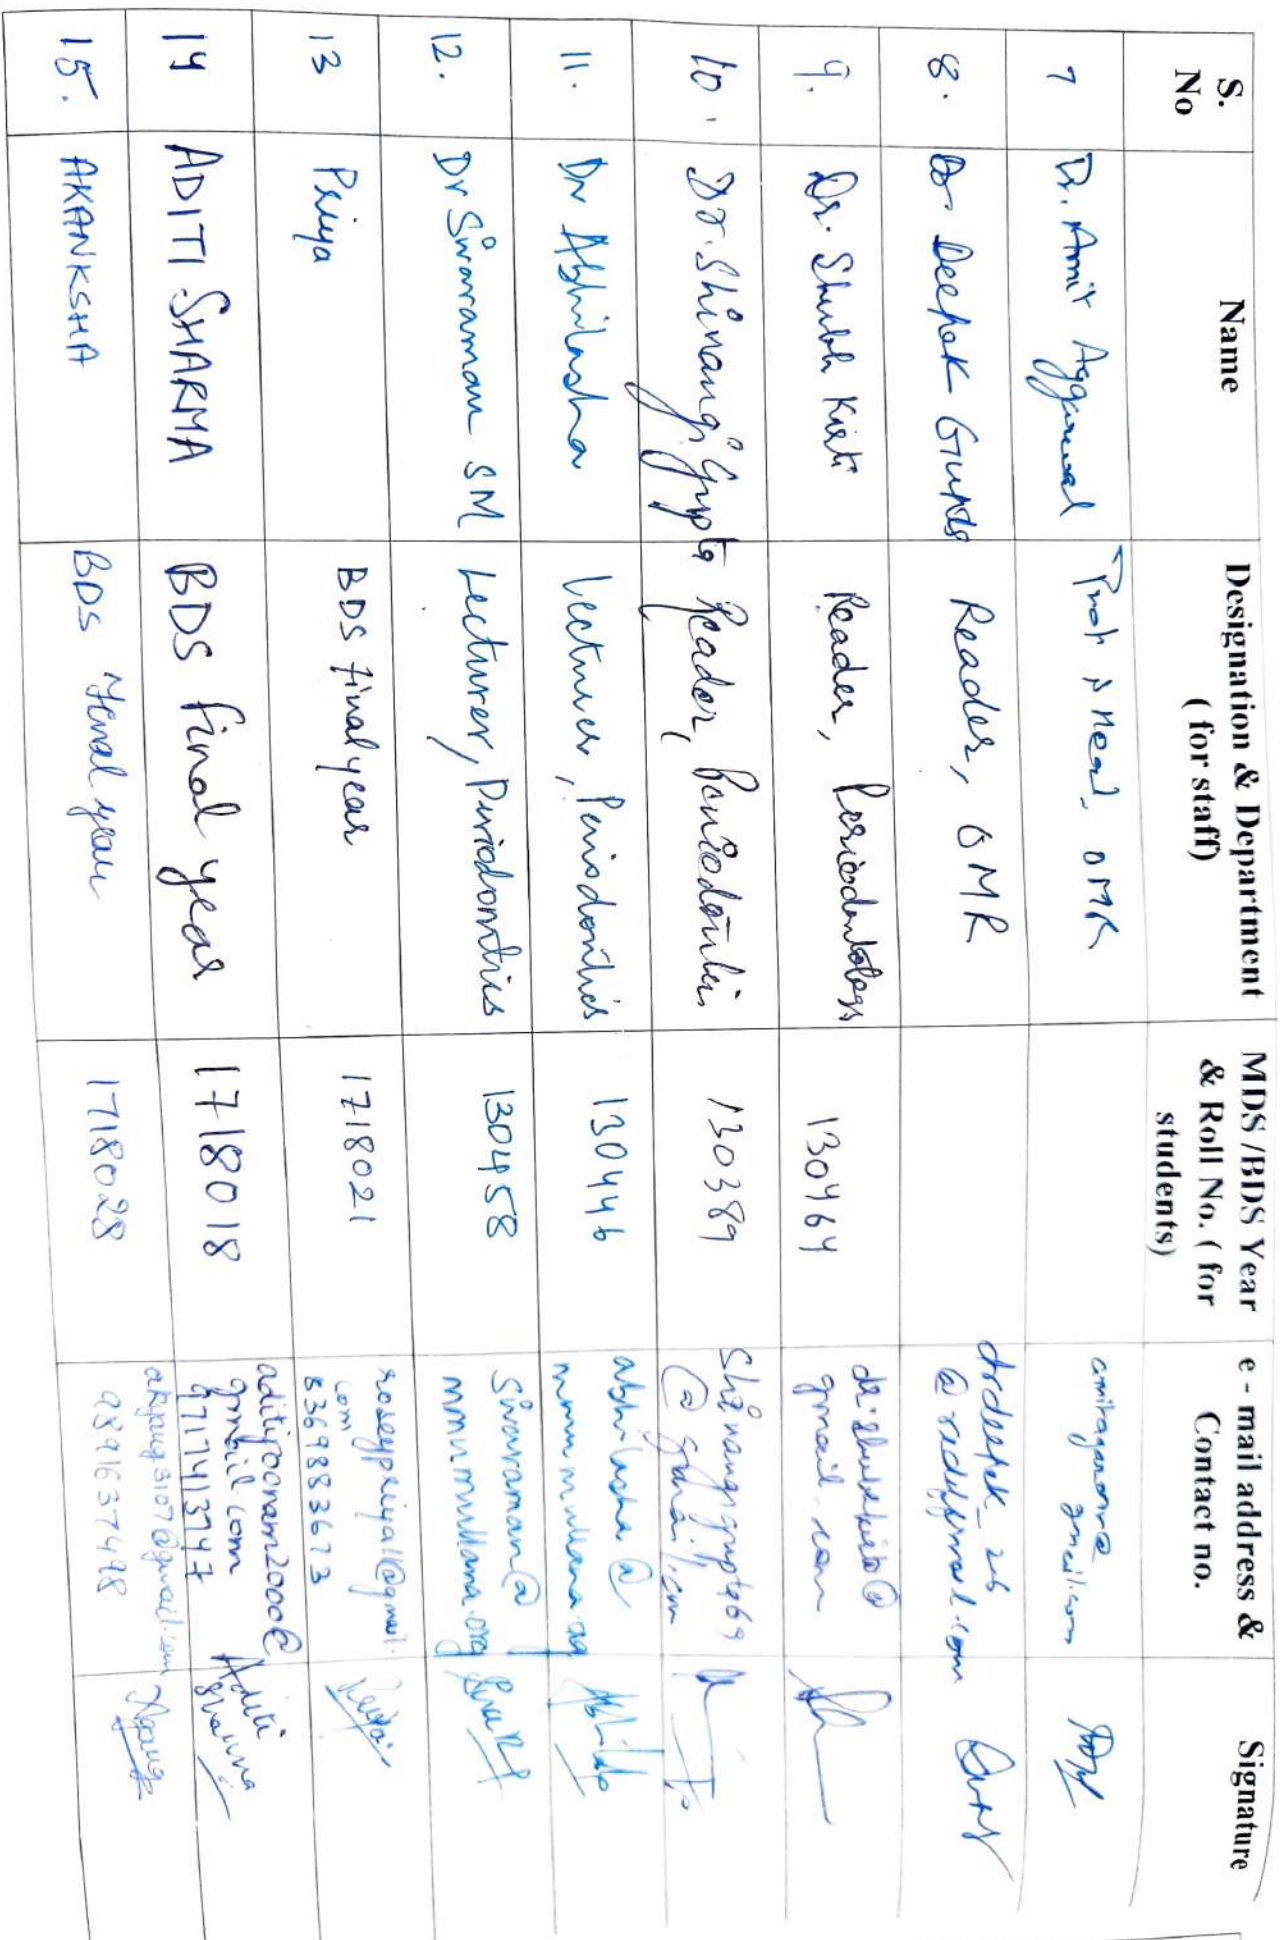 S. No Name Designation & Department ( for staff) MDS /BDS Year & Roll No. ( for students) e - mail address & Contact no. Signature
7 Dr. Amit Aggarwal Prof & Head, OMR gmail.com
8. Dr. Deepak Gupta Reader, OMR drdeepak_26 @ rediffmail.com
9. Dr. Shubh Kirti Reader, Periodontology 130464 gmail.com
10. Dr. Shivangi Gupta Reader, Periodontics 130389 Shivangigupta69 @gmail.com
11. Dr Abhilasha Lecturer, Periodontics 130446 abhilasha @
12. Dr Sivaraman SM Lecturer, Periodontics 130458 Sivaraman@ mmumullana.org
13 Priya BDS final year 1718021 roseypriya11@gmail. com 8369883673
14 ADITI SHARMA BDS final year 1718018 aditipoonam2000@ gmail.com 9717413747 Aditi Sharma
15. AKANKSHA BDS Final year 1718028 9891637498